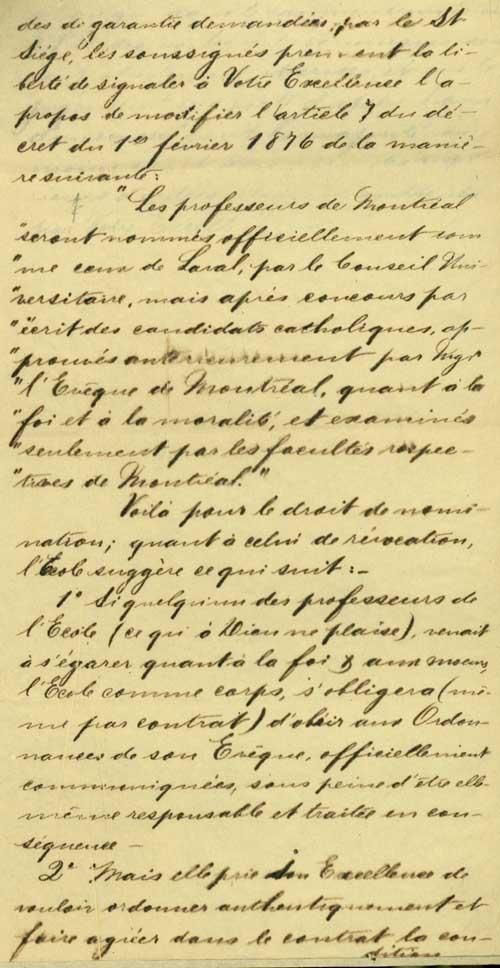 des de garantie demandées, par le St
Siége, les soussignés prennent la li-
berté de signaler à Votre Excellence l'a
propos de modifier l'article 7 du dé-
cret du 1er février 1876 de la maniè-
re suivante:
"Les professeurs de Montréal
"seront nommés officiellement com
"me ceux de Laval, par le Conseil Uni-
"versitaire, mais après concours par
"écrit des candidats catholiques, ap-
"prouvés antérieurement par Mgr
"l'Evêque de Montréal, quant à la
"foi et à la moralité, et examinés
"seulement par les facultés respec-
"tives de Montréal."
Voilà pour le droit de nomi-
nation; quant à celui de révocation,
l'Ecole suggère ce qui suit:-
1° Si quelqu'un des professeurs de
l'Ecole (ce qu'à Dieu ne plaise), venait
à s'égarer quant à la foi & aux moeurs,
l'Ecole comme corps, s'obligera (mê-
me par contrat) d'obéir aux Ordon-
nances de son Evêque, officiellement
communiquées, sous peine d'être elle
même responsable et traitée en con-
séquence -
2° Mais elle prie Son Excellence de
vouloir ordonner authentiquement et
faire agréer dans le contrat la con-
dition